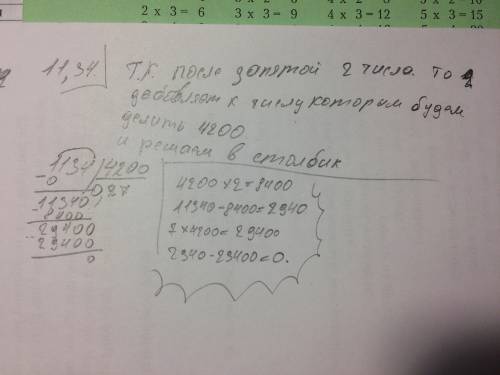 2 x 3 = 6
3 x 3 = 9
4 x 3 = 12
5 x 3 = 15
11,34.
Т.К. после запятой 2 числа. то
добовляем к числу которым будем
делить 4200.
и решаем в столбик
1134 4200
- 0 0,27
11340
- 8400
29400
29400
0
4200 x 2 = 8400
11340 - 8400 = 2940
7 x 4200 = 29400
2940 - 29400 = 0.